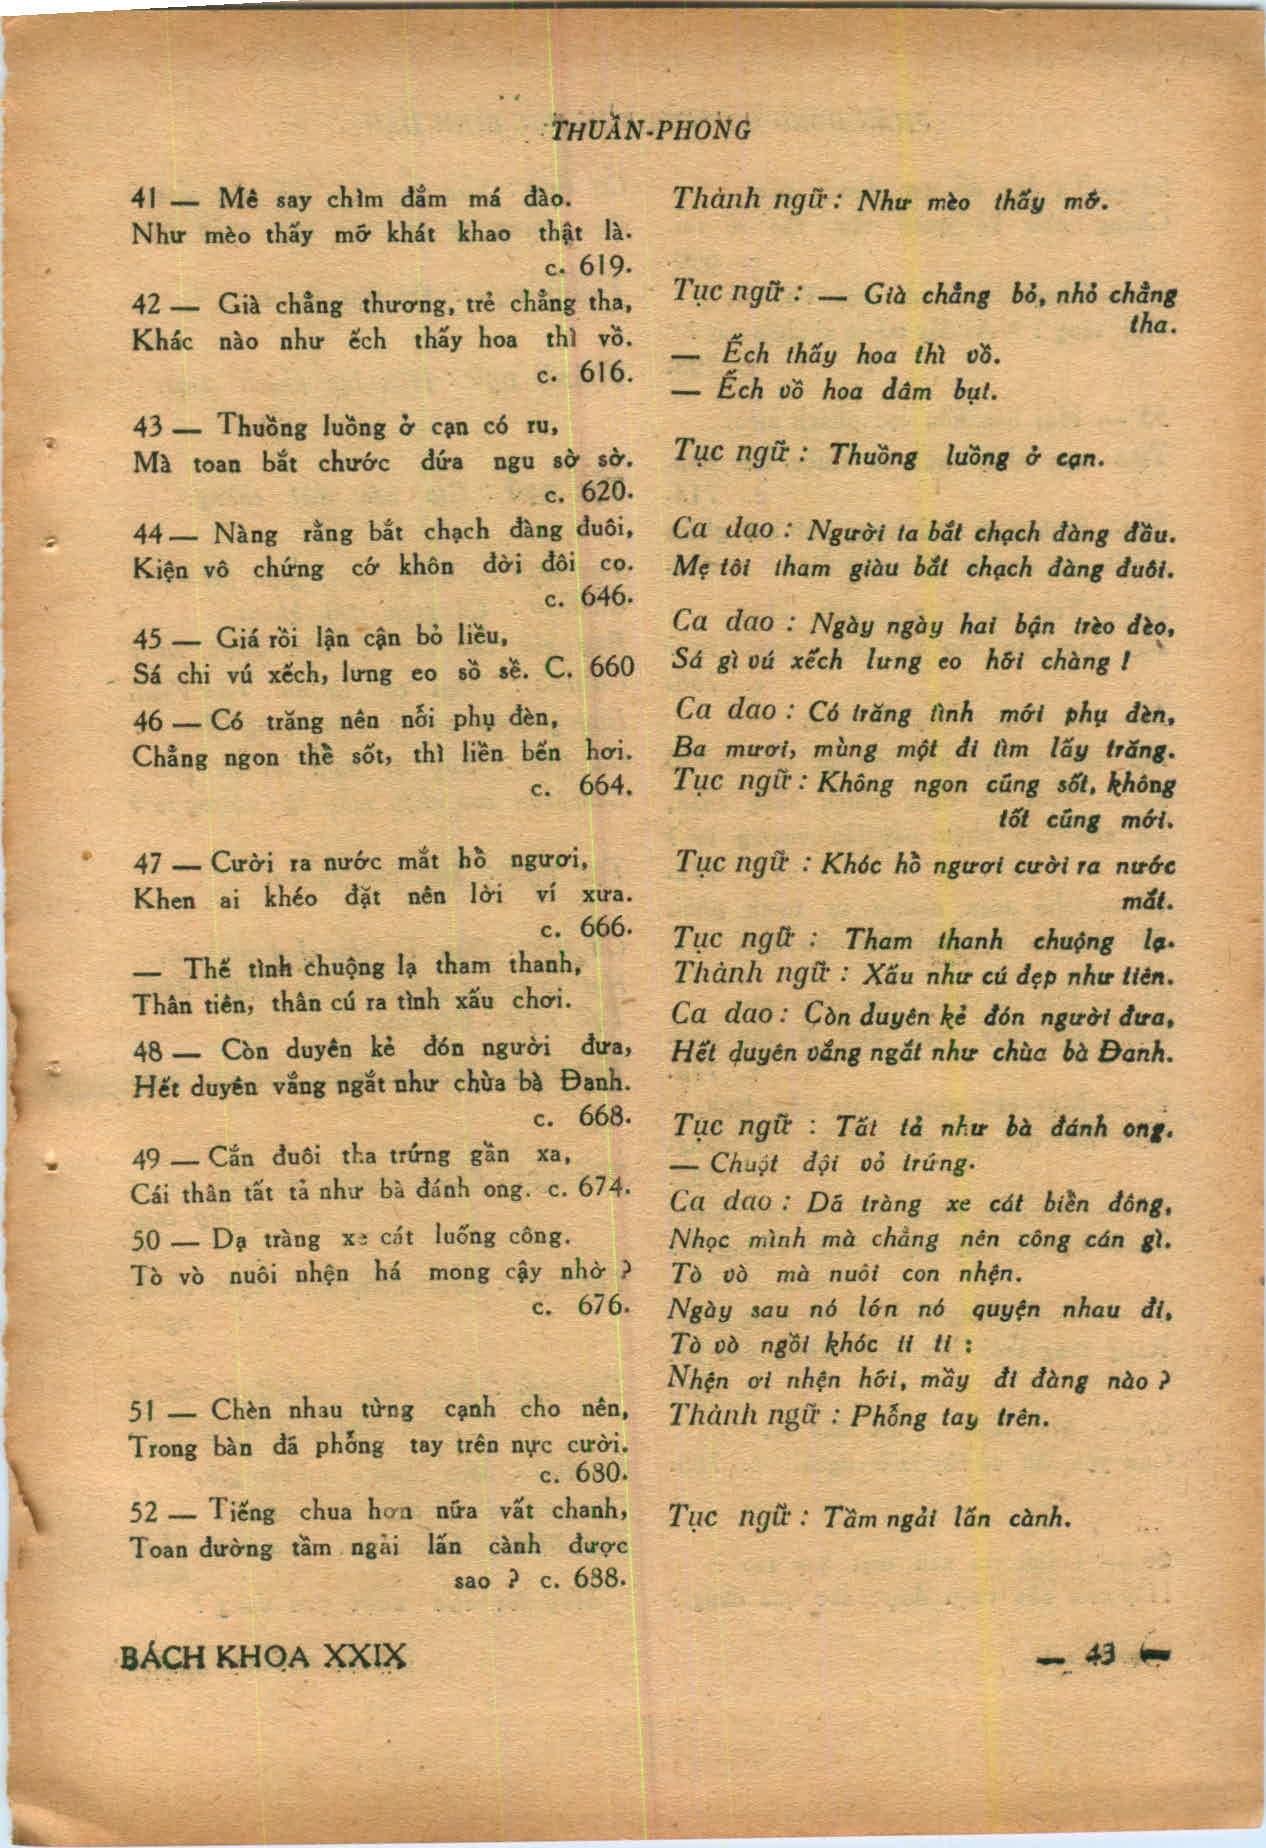 THUẦN-PHONG
41 — Mê say chìm đắm má đào.
Như mèo thấy mỡ khát khao thật là.
c. 619.
42 — Già chẳng thương, trẻ chẳng tha,
Khác nào như ếch thấy hoa thì vồ.
c. 616.
43 — Thuồng luồng ở cạn có ru,
Mà toan bắt chước đứa ngu sờ sờ.
c. 620.
44 — Nàng rằng bắt chạch đàng đuôi,
Kiện vô chứng cớ khôn đời đôi co.
c. 646.
45 — Giá rồi lận cận bỏ liều,
Sá chi vú xếch, lưng eo sồ sề. C. 660
46 — Có trăng nên nỗi phụ đèn,
Chẳng ngon thề sốt, thì liền bến hơi.
c. 664.
47 — Cười ra nước mắt hồ ngươi,
Khen ai khéo đặt nên lời ví xưa.
c. 666.
— Thế tình chuộng lạ tham thanh,
Thân tiên, thân cú ra tình xấu chơi.
48 — Còn duyên kẻ đón người đưa,
Hết duyên vắng ngắt như chùa bà Đanh.
c. 668.
49 — Cắn đuôi tha trứng gần xa,
Cái thân tất tả như bà đánh ong. c. 674.
50 — Dạ tràng xe cát luống công.
Tò vò nuôi nhện há mong cậy nhờ ?
c. 676.
51 — Chèn nhau từng cạnh cho nên,
Trong bàn đã phỗng tay trên nực cười.
c. 680.
52 — Tiếng chua hơn nữa vất chanh,
Toan đường tầm ngải lấn cành được
sao ? c. 688.
Thành ngữ : Như mèo thấy mỡ.
Tục ngữ : — Già chẳng bỏ, nhỏ chẳng
tha.
— Ếch thấy hoa thì vồ.
— Ếch vồ hoa dâm bụt.
Tục ngữ : Thuồng luồng ở cạn.
Ca dao : Người ta bắt chạch đàng đầu.
Mẹ tôi tham giàu bắt chạch đàng đuôi.
Ca dao : Ngày ngày hai bận trèo đèo,
Sá gì vú xếch lưng eo hỡi chàng !
Ca dao : Có trăng tình mới phụ đèn,
Ba mươi, mùng một đi tìm lấy trăng.
Tục ngữ : Không ngon cũng sốt, không
tốt cũng mới.
Tục ngữ : Khóc hồ ngươi cười ra nước
mắt.
Tục ngữ : Tham thanh chuộng lạ.
Thành ngữ : Xấu như cú đẹp như tiên.
Ca dao : Còn duyên kẻ đón người đưa,
Hết duyên vắng ngắt như chùa bà Đanh.
Tục ngữ : Tất tả như bà đánh ong.
— Chuột đội vỏ trứng.
Ca dao : Dã tràng xe cát biển đông,
Nhọc mình mà chẳng nên công cán gì.
Tò vò mà nuôi con nhện.
Ngày sau nó lớn nó quyện nhau đi,
Tò vò ngồi khóc tỉ ti :
Nhện ơi nhện hỡi, mầy đi đàng nào ?
Thành ngữ : Phỗng tay trên.
Tục ngữ : Tầm ngải lấn cành.
BÁCH KHOA XXIX
— 43 —